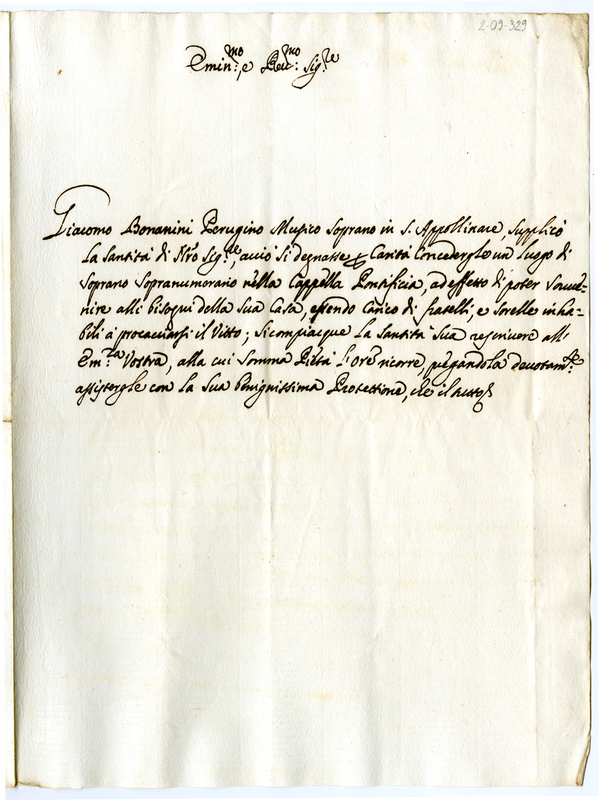 2-09-329
Emin:mo e Reu:mo Sig:re
Giacomo Bonanini Perugino Musico Soprano in S. Appollinare, supplicò
la Santità di Nro Sig:re, acciò si degnasse per Carità Concedergle un luogo di
Soprano Sopranumorario nella Cappella Pontificia, ad effetto di poter souue-
nire alli bisogni della Sua Casa, essendo Carico di fratelli, e Sorelle inha-
bili à procacciarsi il Vitto; Si compiacque la Santità Sua rescriuere all'
Em:za Vostra, alla cui Somma Pietà l'Ore ricorre, pregandola deuotam:te
assistergle con la Sua benignissima Protettione, che il tutto